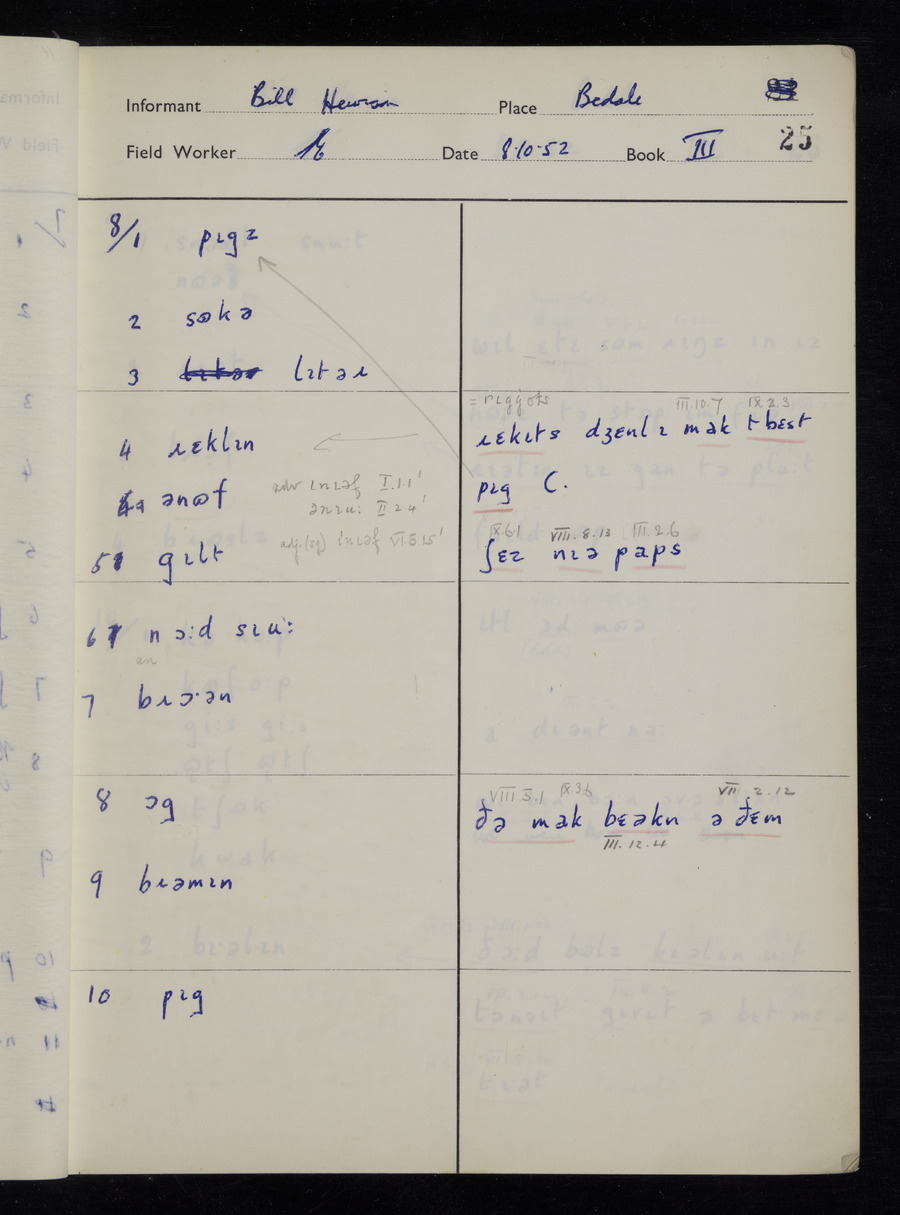 Informant Bill Hewison Place Bedale
Field Worker Date 8·10·52 Book III 25
8/1 pɪgz
2 sɷkə
3 lɪtəɹ
= riggots III.10.7 IX.3.3
4 ɹɛklɪn
ɹɛkɪts dʒɛnlɪ mak t bɛst
4a ənɷf
adv ɪnɪəf I.1.1'
ənɪu: II 2 4'
pɪg C.
adj.(sg) ɪnɪəf VI.5 15'
IX.6.1 VIII.8.13 III.2.6
5 gɪlt
ʃɛz nɪə paps
6 n ɔ:d sɪu:
an
7 bɹɔ·ən
VIII 5.1 IX.3.6 VII.2.12
8 ɔg
ðə mak bɛəkn ə ðɛm
III.12.4
9 bɹəmɪn
10 pɪg